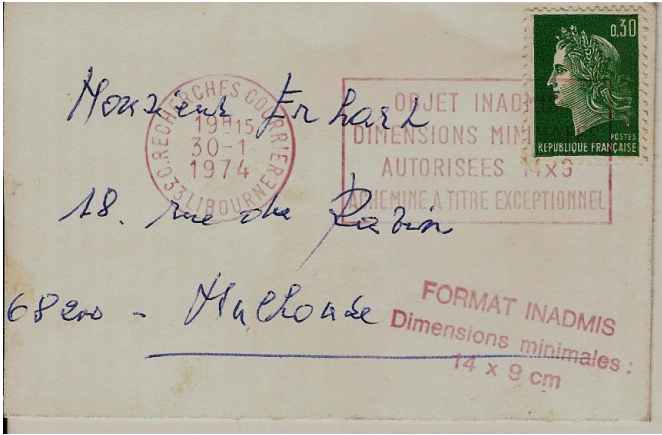 0,30
POSTES
REPUBLIQUE FRANÇAISE
C. RECHERCHES COURRIER
19H15
30-1
1974
33 LIBOURNE
OBJET INADM
DIMENSIONS MINIMALES
AUTORISEES 14x9
ACHEMINE A TITRE EXCEPTIONNEL
Monsieur Erhard
18. rue du Rabin
68200 - Mulhouse
FORMAT INADMIS
Dimensions minimales :
14 x 9 cm